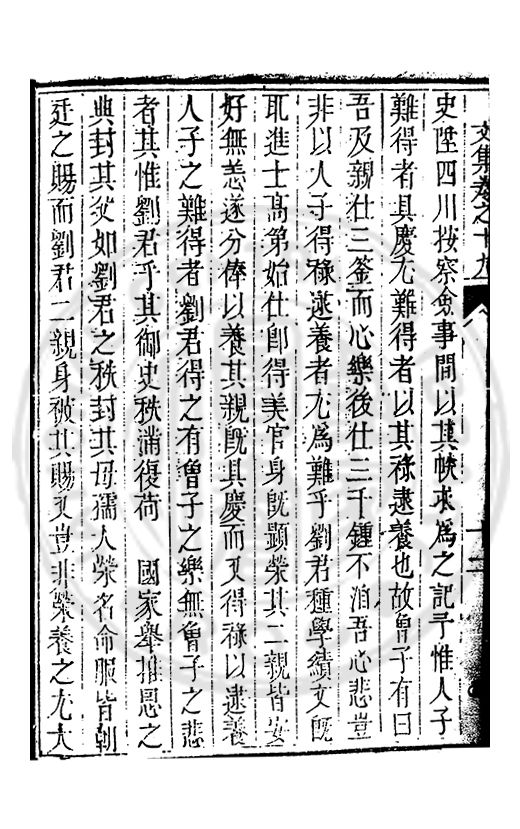 文集卷之十九
史陞四川按察僉事間以其帙求為之記予惟人子
難得者具慶尤難得者以其祿逮養也故曾子有曰
吾及親仕三釜而心樂後仕三千鍾不洎吾心悲豈
非以人子得祿逮養者尤為難乎劉君種學績文既
取進士高第始仕即得美官身既顯榮其二親皆安
好無恙遂分俸以養其親既具慶而又得祿以逮養
人子之難得者劉君得之有曾子之樂無曾子之悲
者其惟劉君乎其御史秩滿復荷 國家舉推恩之
典封其父如劉君之秩封其母孺人榮名命服皆朝
廷之賜而劉君二親身被其賜又豈非榮養之尤大